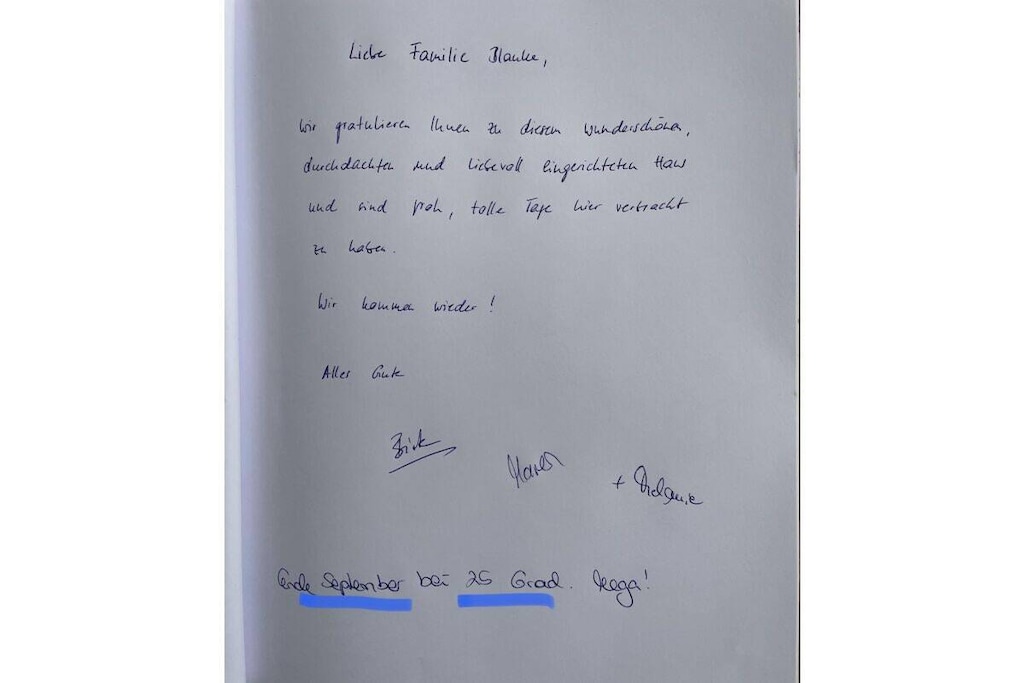 Liebe Familie Blanke,
wir gratulieren Ihnen zu diesem wunderschönen,
durchdachten und liebevoll eingerichteten Haus
und sind froh, tolle Tage hier verbracht
zu haben.
Wir kommen wieder!
Alles Gute
+ Melanie
Ende September bei 25 Grad. Mega!